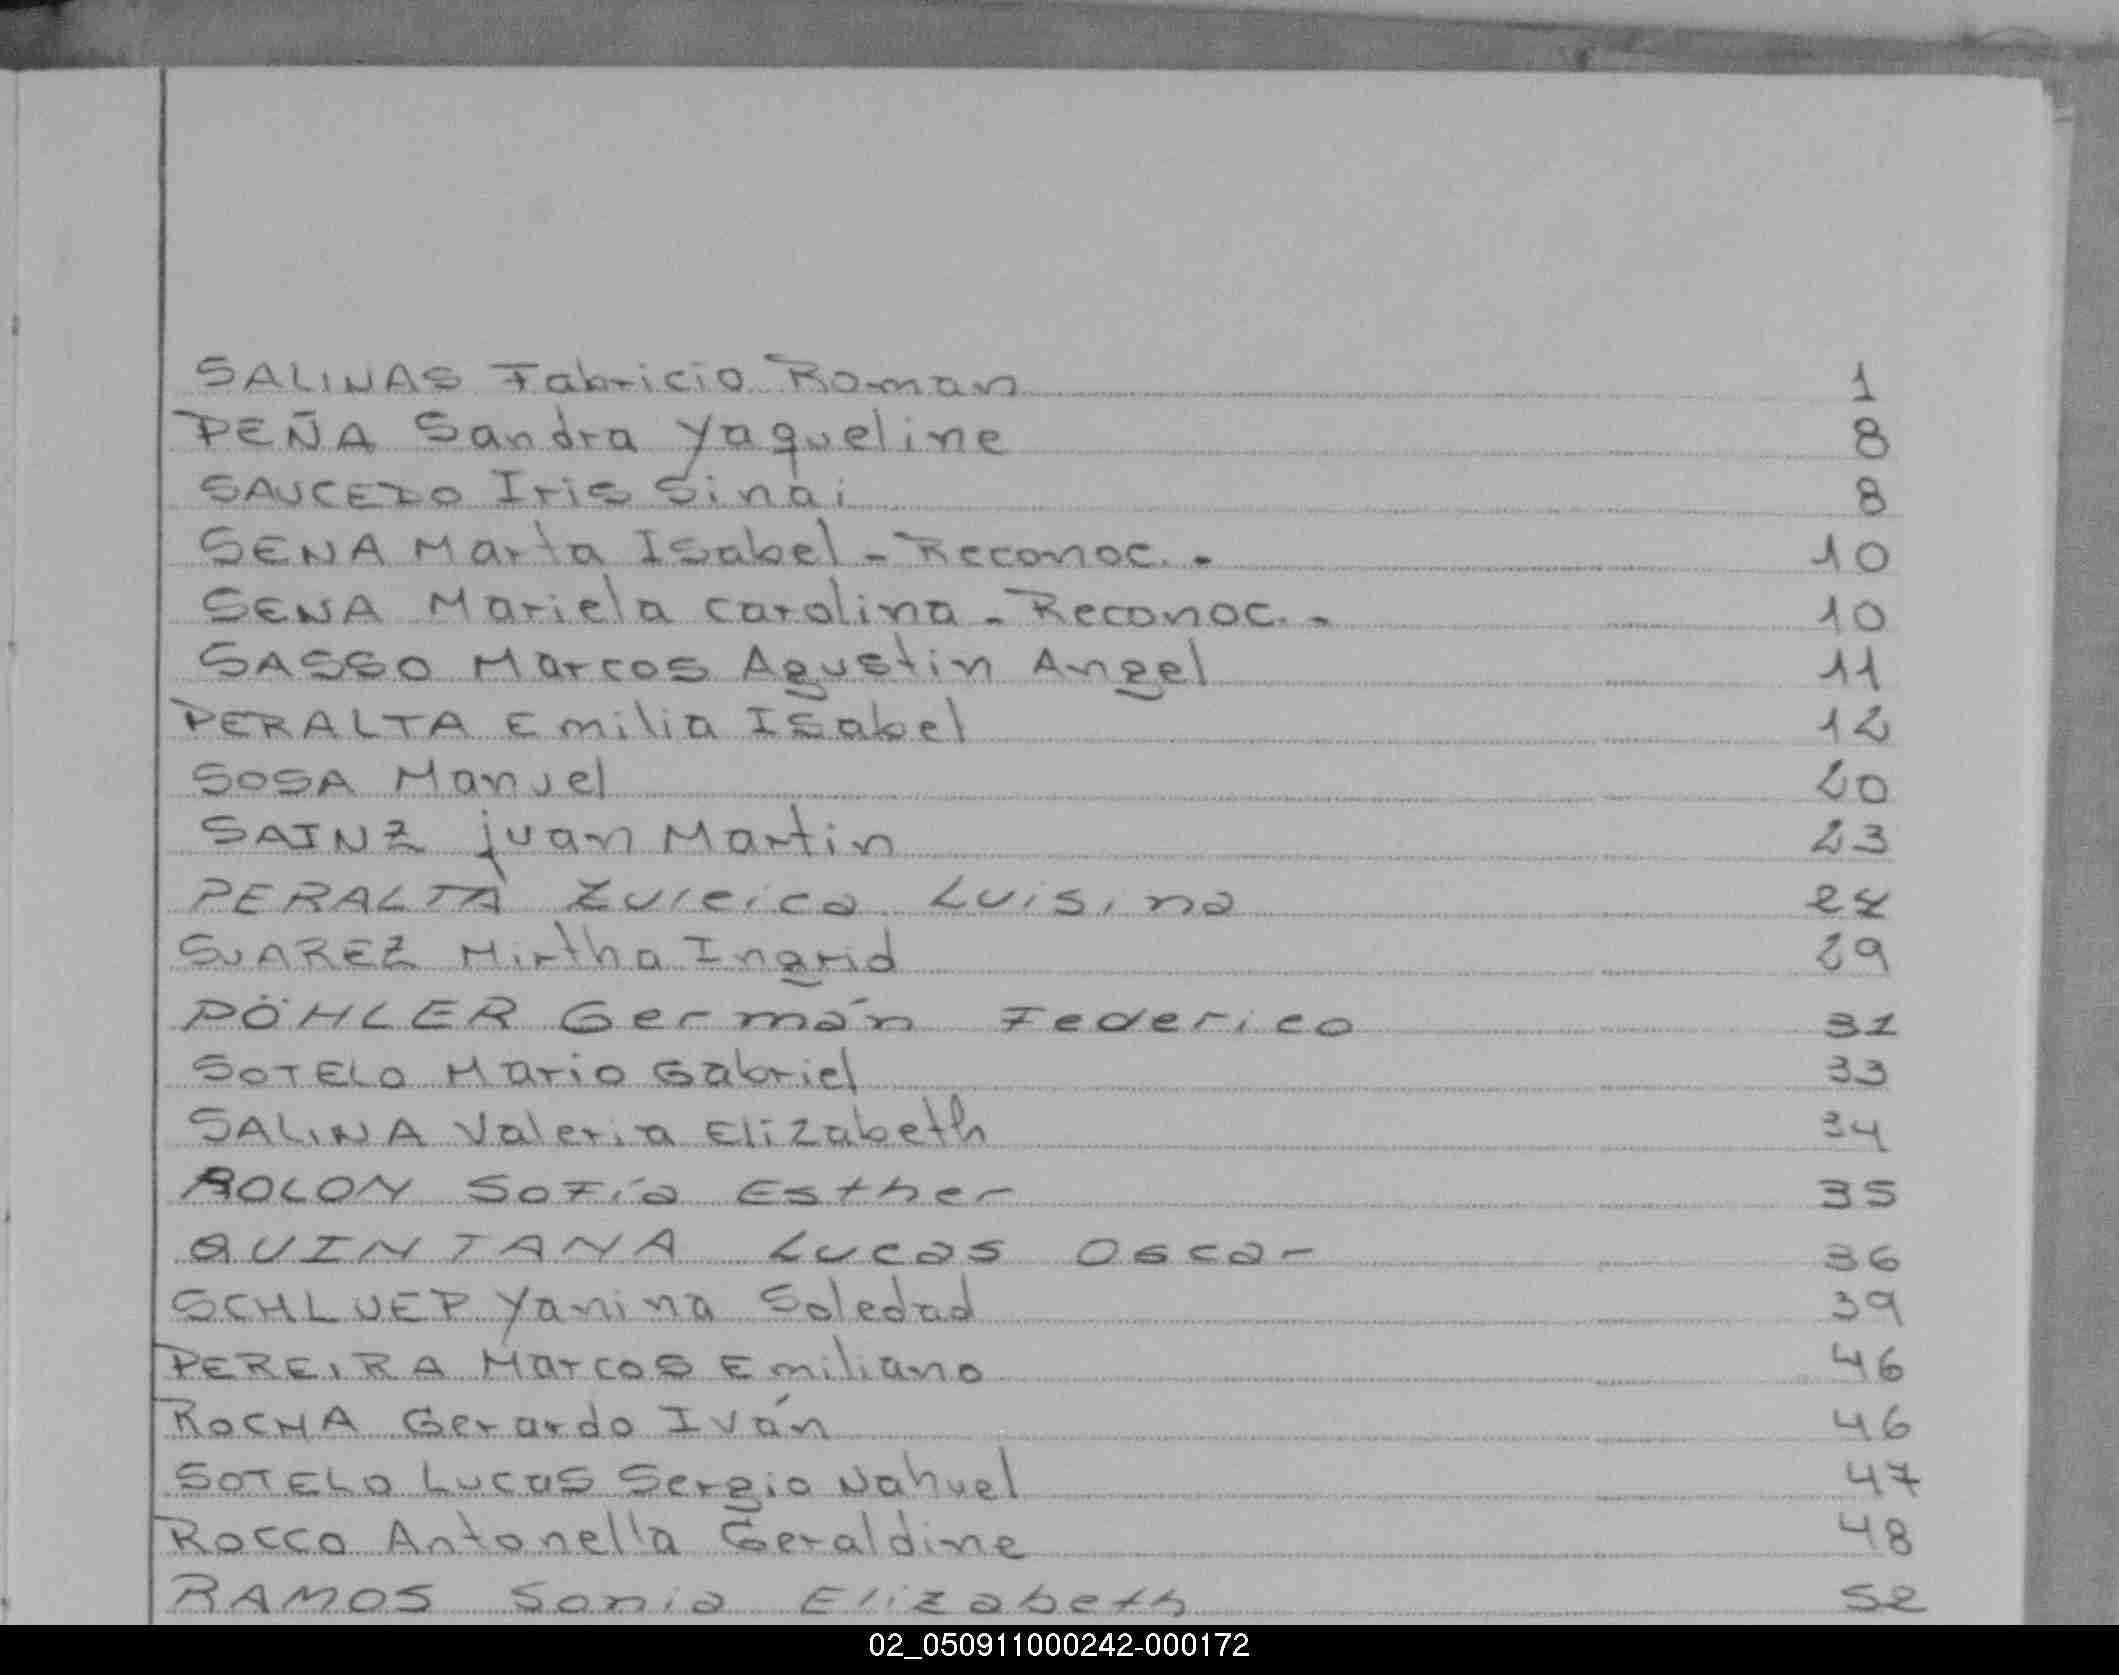 SALINAS Fabricio Roman 1
PEÑA Sandra Yaqueline 8
SAUCEDO Iris Sinai 8
SENA Marta Isabel - Reconoc. - 10
SENA Mariela Carolina - Reconoc. - 10
SASSO Marcos Agustin Angel 11
PERALTA Emilia Isabel 12
SOSA Manuel 20
SAINZ juan Martin 23
PERALTA Zuleica Luisina
SUAREZ Mirtha Ingrid 29
PÖHLER Germán Federico 31
SOTELO Mario Gabriel 33
SALINA Valeria Elizabeth 34
ROLON Sofía Esther 35
QUINTANA Lucas Oscar 36
SCHLUEP Yanina Soledad 39
PEREIRA Marcos Emiliano 46
ROCHA Gerardo Iván 46
SOTELO Lucas Sergio Nahuel 47
ROCCO Antonella Geraldine 48
RAMOS Sonia Elizabeth 52
02_050911000242-000172